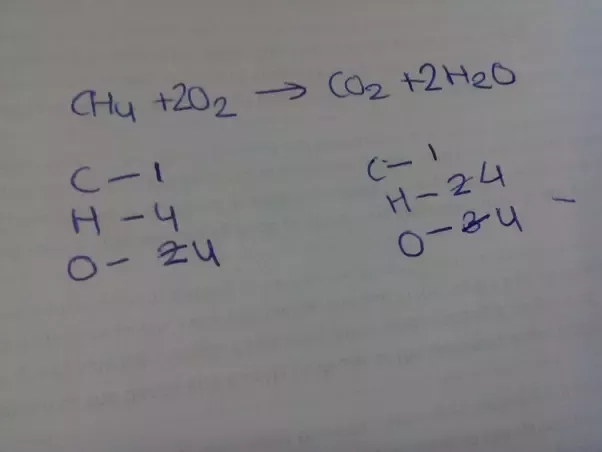 CH4 + 2O2 → CO2 + 2H2O
C – 1
H – 4
O – 2 4
C – 1
H – 2 4
O – 3 4 –